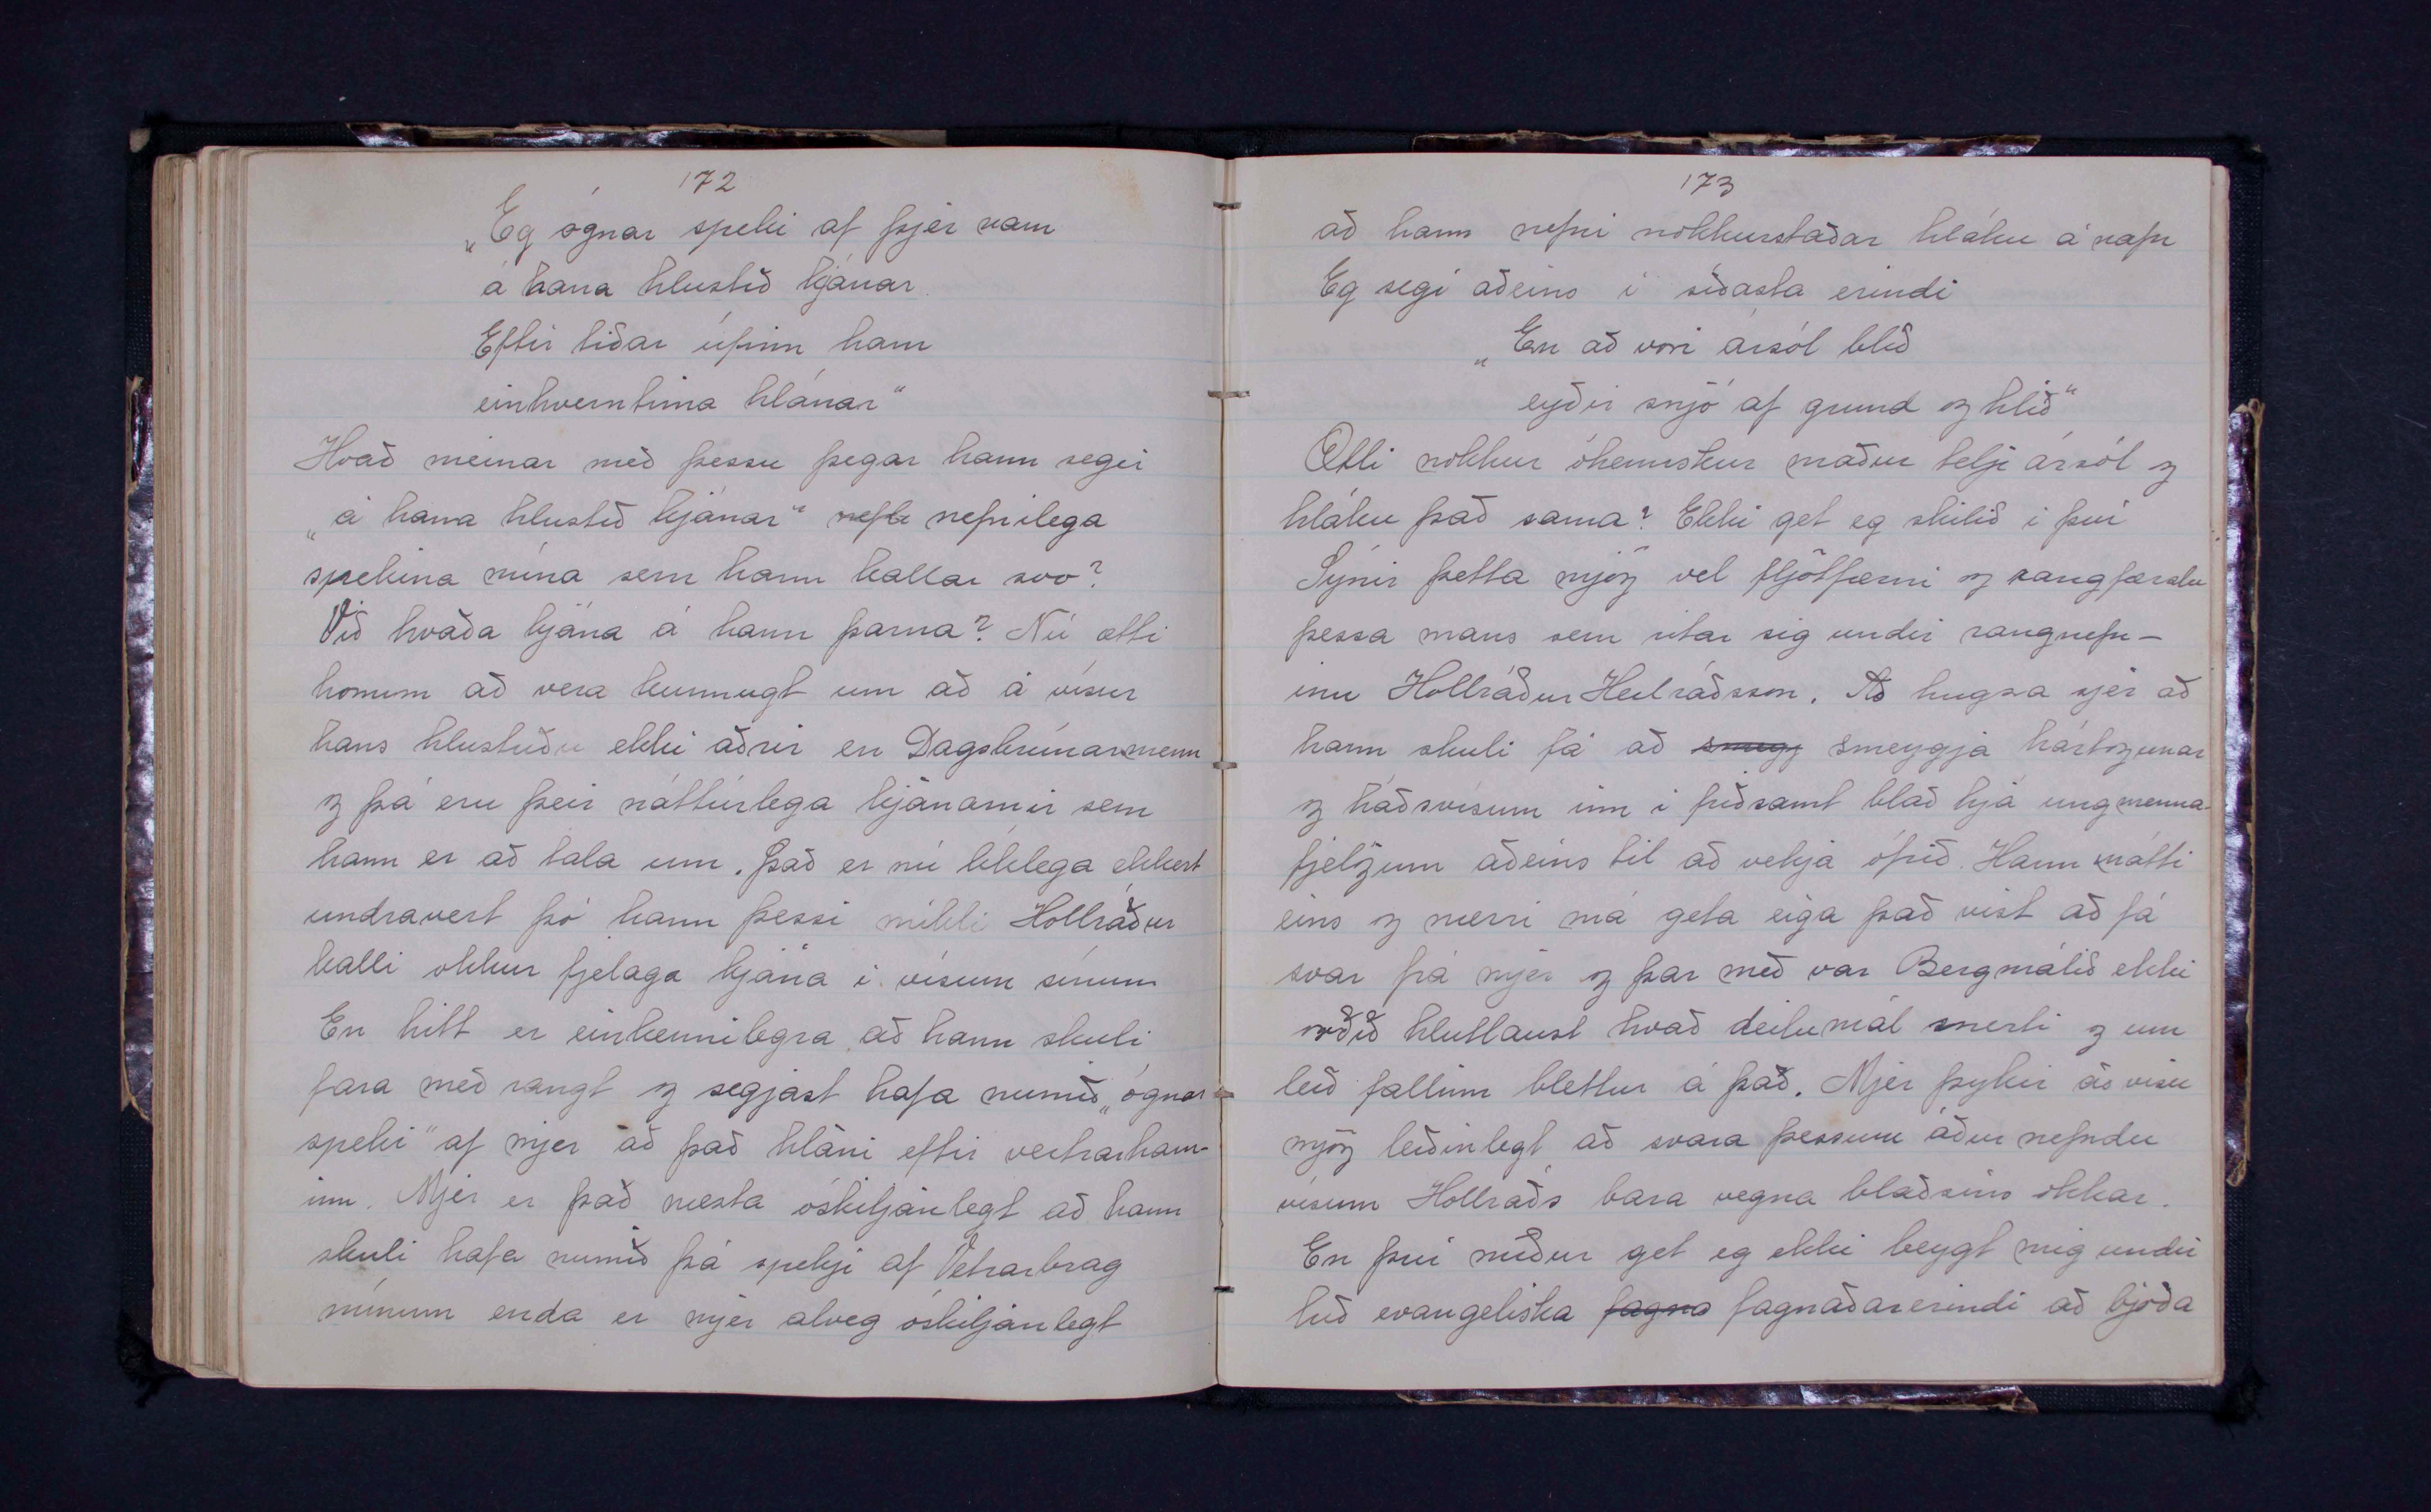 172
„Eg ógnar speki af þjer nam
á hana hlustið kjánar
Eftir tíðar úfinn ham
einhverntíma hlánar"
Hvað meinar með þessu þegar hann segir
„á hana hlustið kjánar" nefle nefnilega
spekina mína sem hann kallar svo?
Við hvaða kjána á hann þarna? Nú ætti
honum að vera kunnugt um að á vísur
hans hlustuðu ekki aðrir en Dagsbrúnarmenn
og þá eru þeir náttúrlega kjánarnir sem
hann er að tala um. Það er nú líklega ekkert
undravert þó hann þessi mikli Hollráður
kalli okkur fjelaga kjána í vísum sínum
En hitt er einkennilegra að hann skuli
fara með rangt og segjast hafa numið „ógnar
speki" af mjer að það hláni eftir vertrarham-
inn. Mjer er það næsta óskiljanlegt að hann
skuli hafa numið þá speki af Vetrarbrag
mínum enda er mjer alveg óskiljanlegt
173
að hann nefni nokkurstaðar hláku á nafn
Eg segi aðeins í síðasta erindi
„En að vori ársól blíð
eyðir snjó af grund og hlíð"
Ætli nokkur óheimskur maður telji ársól og
hláku það sama? Ekki get eg skilið í því
Sýnir þetta mjög vel fljótfærni og rangfærslu
þessa mans sem ritar sig undir rangnefn-
inu Hollráður Heilráðsson. Að hugsa sjer að
hann skuli fá að smegg smeygja hártogunar
og háðsvísum inn í friðsamt blað hjá ungmenna-
fjelögum aðeins til að vekja ófrið. Hann mátti
eins og nærri má geta eiga það vist að fá
svar frá mjer og þar með var Bergmálið ekki
orðið hlutlaust hvað deilumál snerti og um
leið fallinn blettur á það. Mjer þykir að vísu
mjög leiðinlegt að svara þessum áður nefndu
vísum Hollráðs bara vegna blaðsins okkar.
En því miður get eg ekki beygt mig undir
hið evangeliska fagna fagnaðarerindi að bjóða